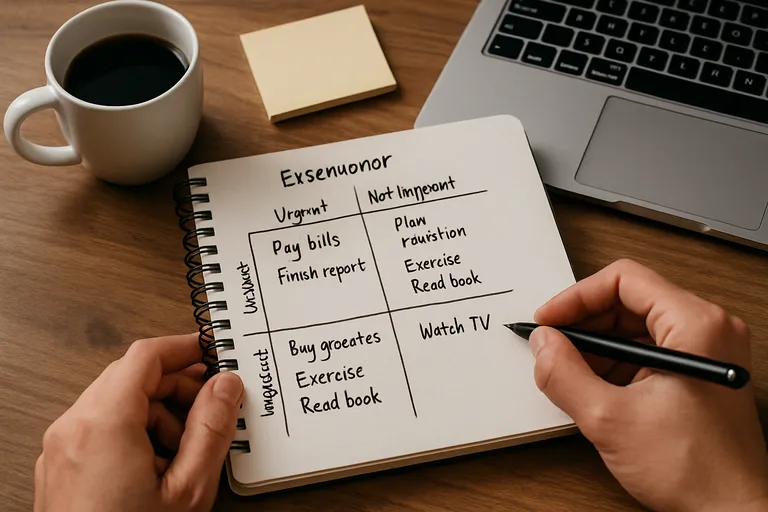 Exsenuonor
Vrgrxnt Not limperont
Pay bills
Finish report
Plaw
rauistion
Exercise
Read book
Buy groeates
Exercise
Read book
Watch TV